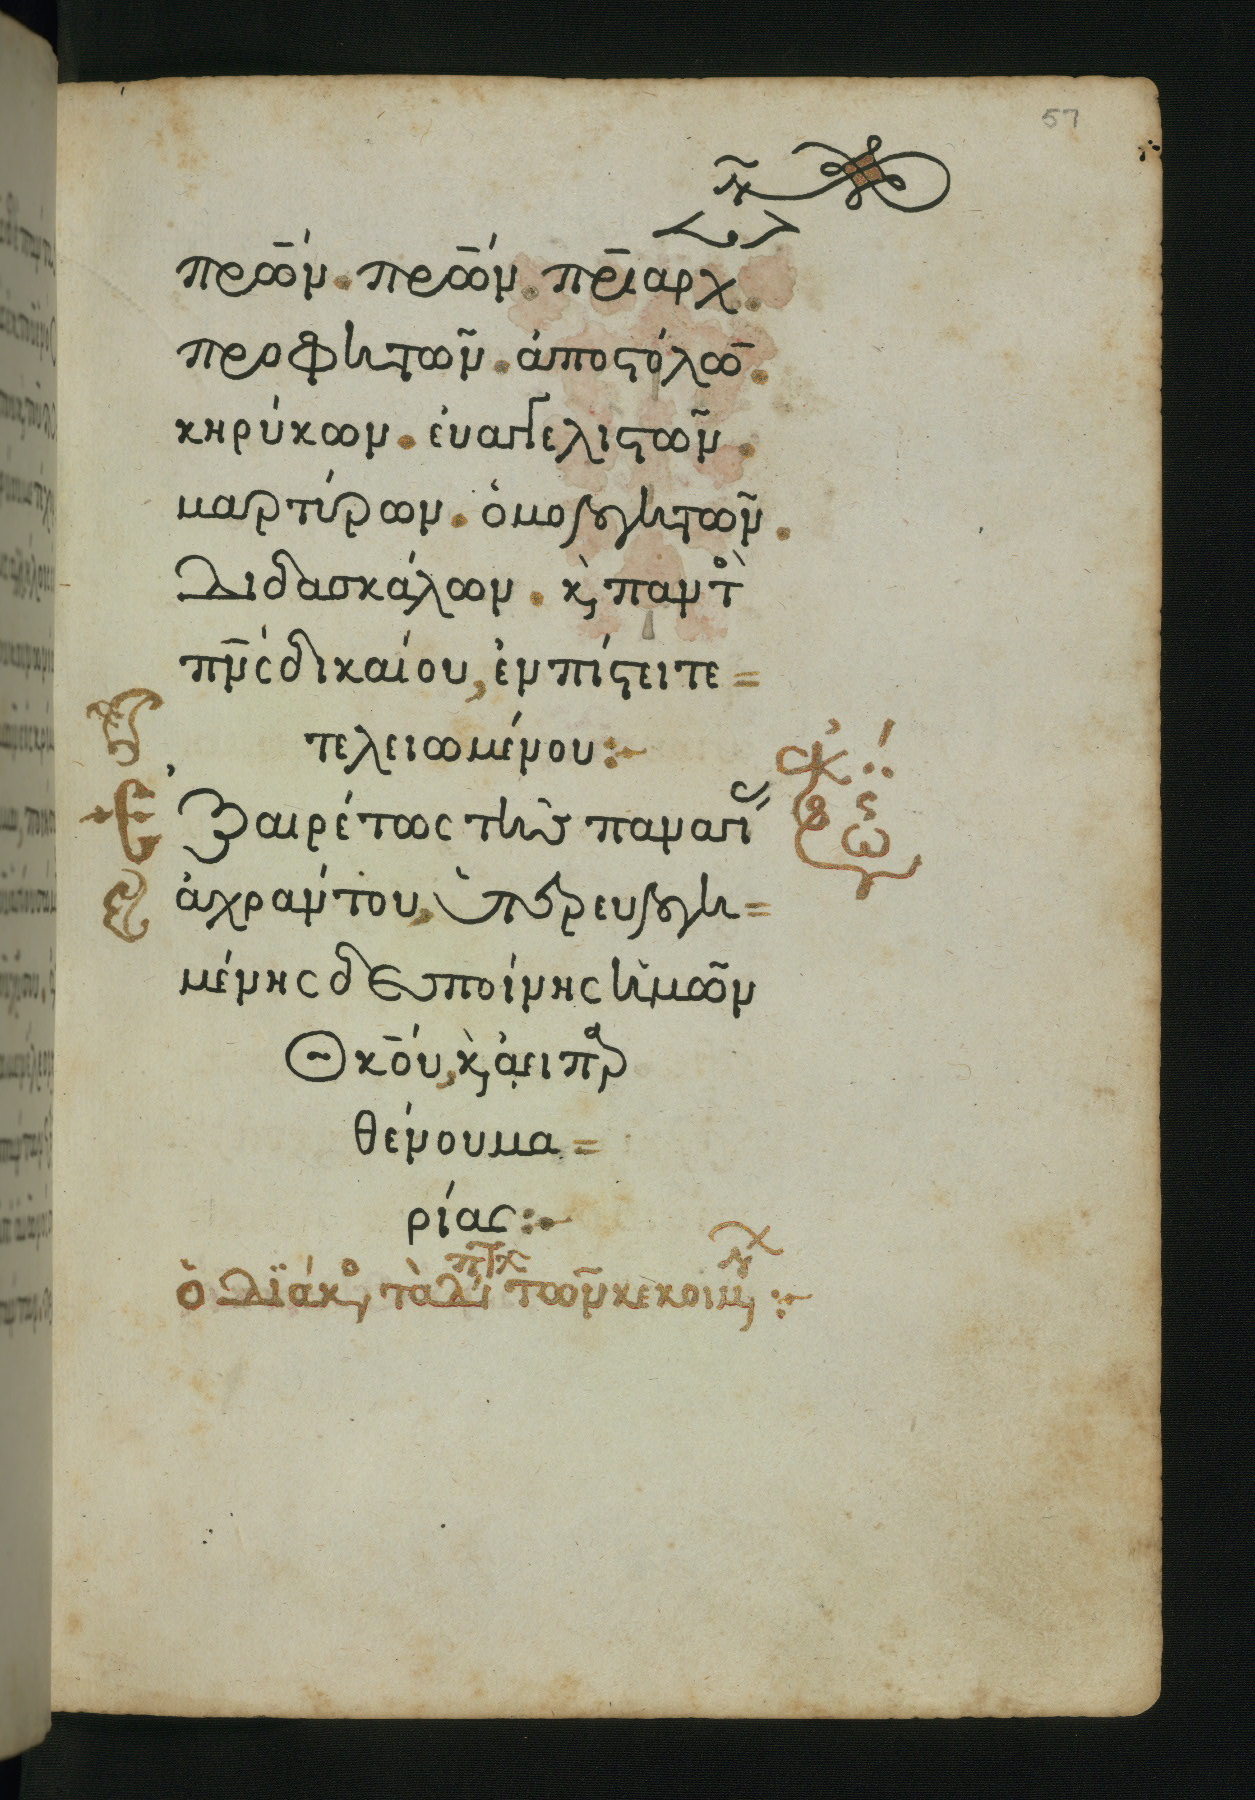 57
πρ̅ω̅ν. πρ̅ω̅ν. πρ̅ιαρχ
προφητῶν. ἀποστόλω̅.
κηρύκων. ἐυαγγελιστῶν.
μαρτύρων. ὁμολογητῶν.
Διδασκάλων. κ̀, παντὸ
πν̅ς δικαίου, ἐν πίστει τε=
τελειωμένου:~
Ἐξαιρέτως τῆς παναγί
ἀχράντου, ὑπερευλογη=
μένης δεσποίνης ἡμῶν
Θκ̅ου, κ̀, ἀειπαρ
θένου μα=
ρίας:~
ὁ Διάκο, τὰ δίπτχ τῶν κεκοιμ:~